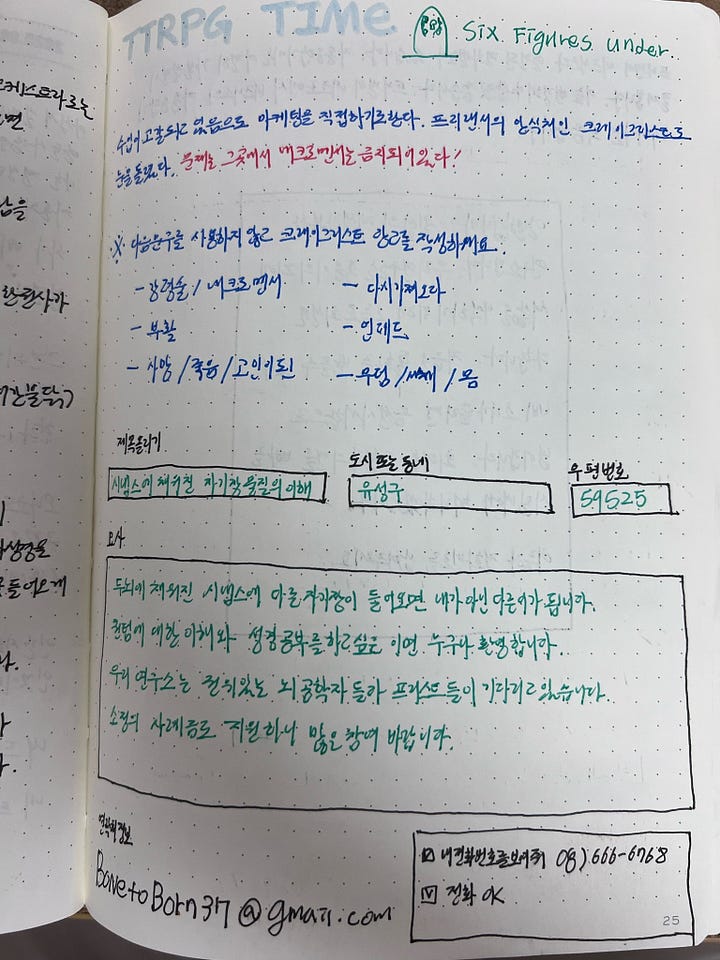 TTRPG TIME
Six Figures under.
수입이 고갈되고 있음으로 마케팅을 직접하기로한다. 프리랜서의 안식처인 크레이그리스트로
눈을돌렸다. 문제는 그곳에서 네크로맨서는 금지되어있다!
※ 다음문구를 사용하지 않고 크레이그리스트 광고를 작성하세요.
- 강령술 / 네크로멘서
- 다시가져오다
- 부활
- 언데드
- 사망 / 죽음 / 고인이된
- 무덤 / 시체 / 몸
제목올리기
도시 또는 동네
우편번호
시냅스에 채워진 자기장 물질의 이해
유성구
59525
묘사
두뇌에 채워진 시냅스에 다른 자기장이 들어오면 내가 아닌 다른이가 됩니다.
퀀텀에 대한 이해와 성경공부를 하고싶은 이면 누구나 환영합니다.
우리 연구소는 권위있는 뇌 공학자 들과 프리스트 들이 기다리고 있습니다.
소정의 사례금도 지원하니 많은 참여 바랍니다.
연락처정보
BonetoBorn37@gmail.com
내전화번호를보여줘 08) 666-6768
전화 OK
25
케스트라로는
면
남을
한판사가
들어오게